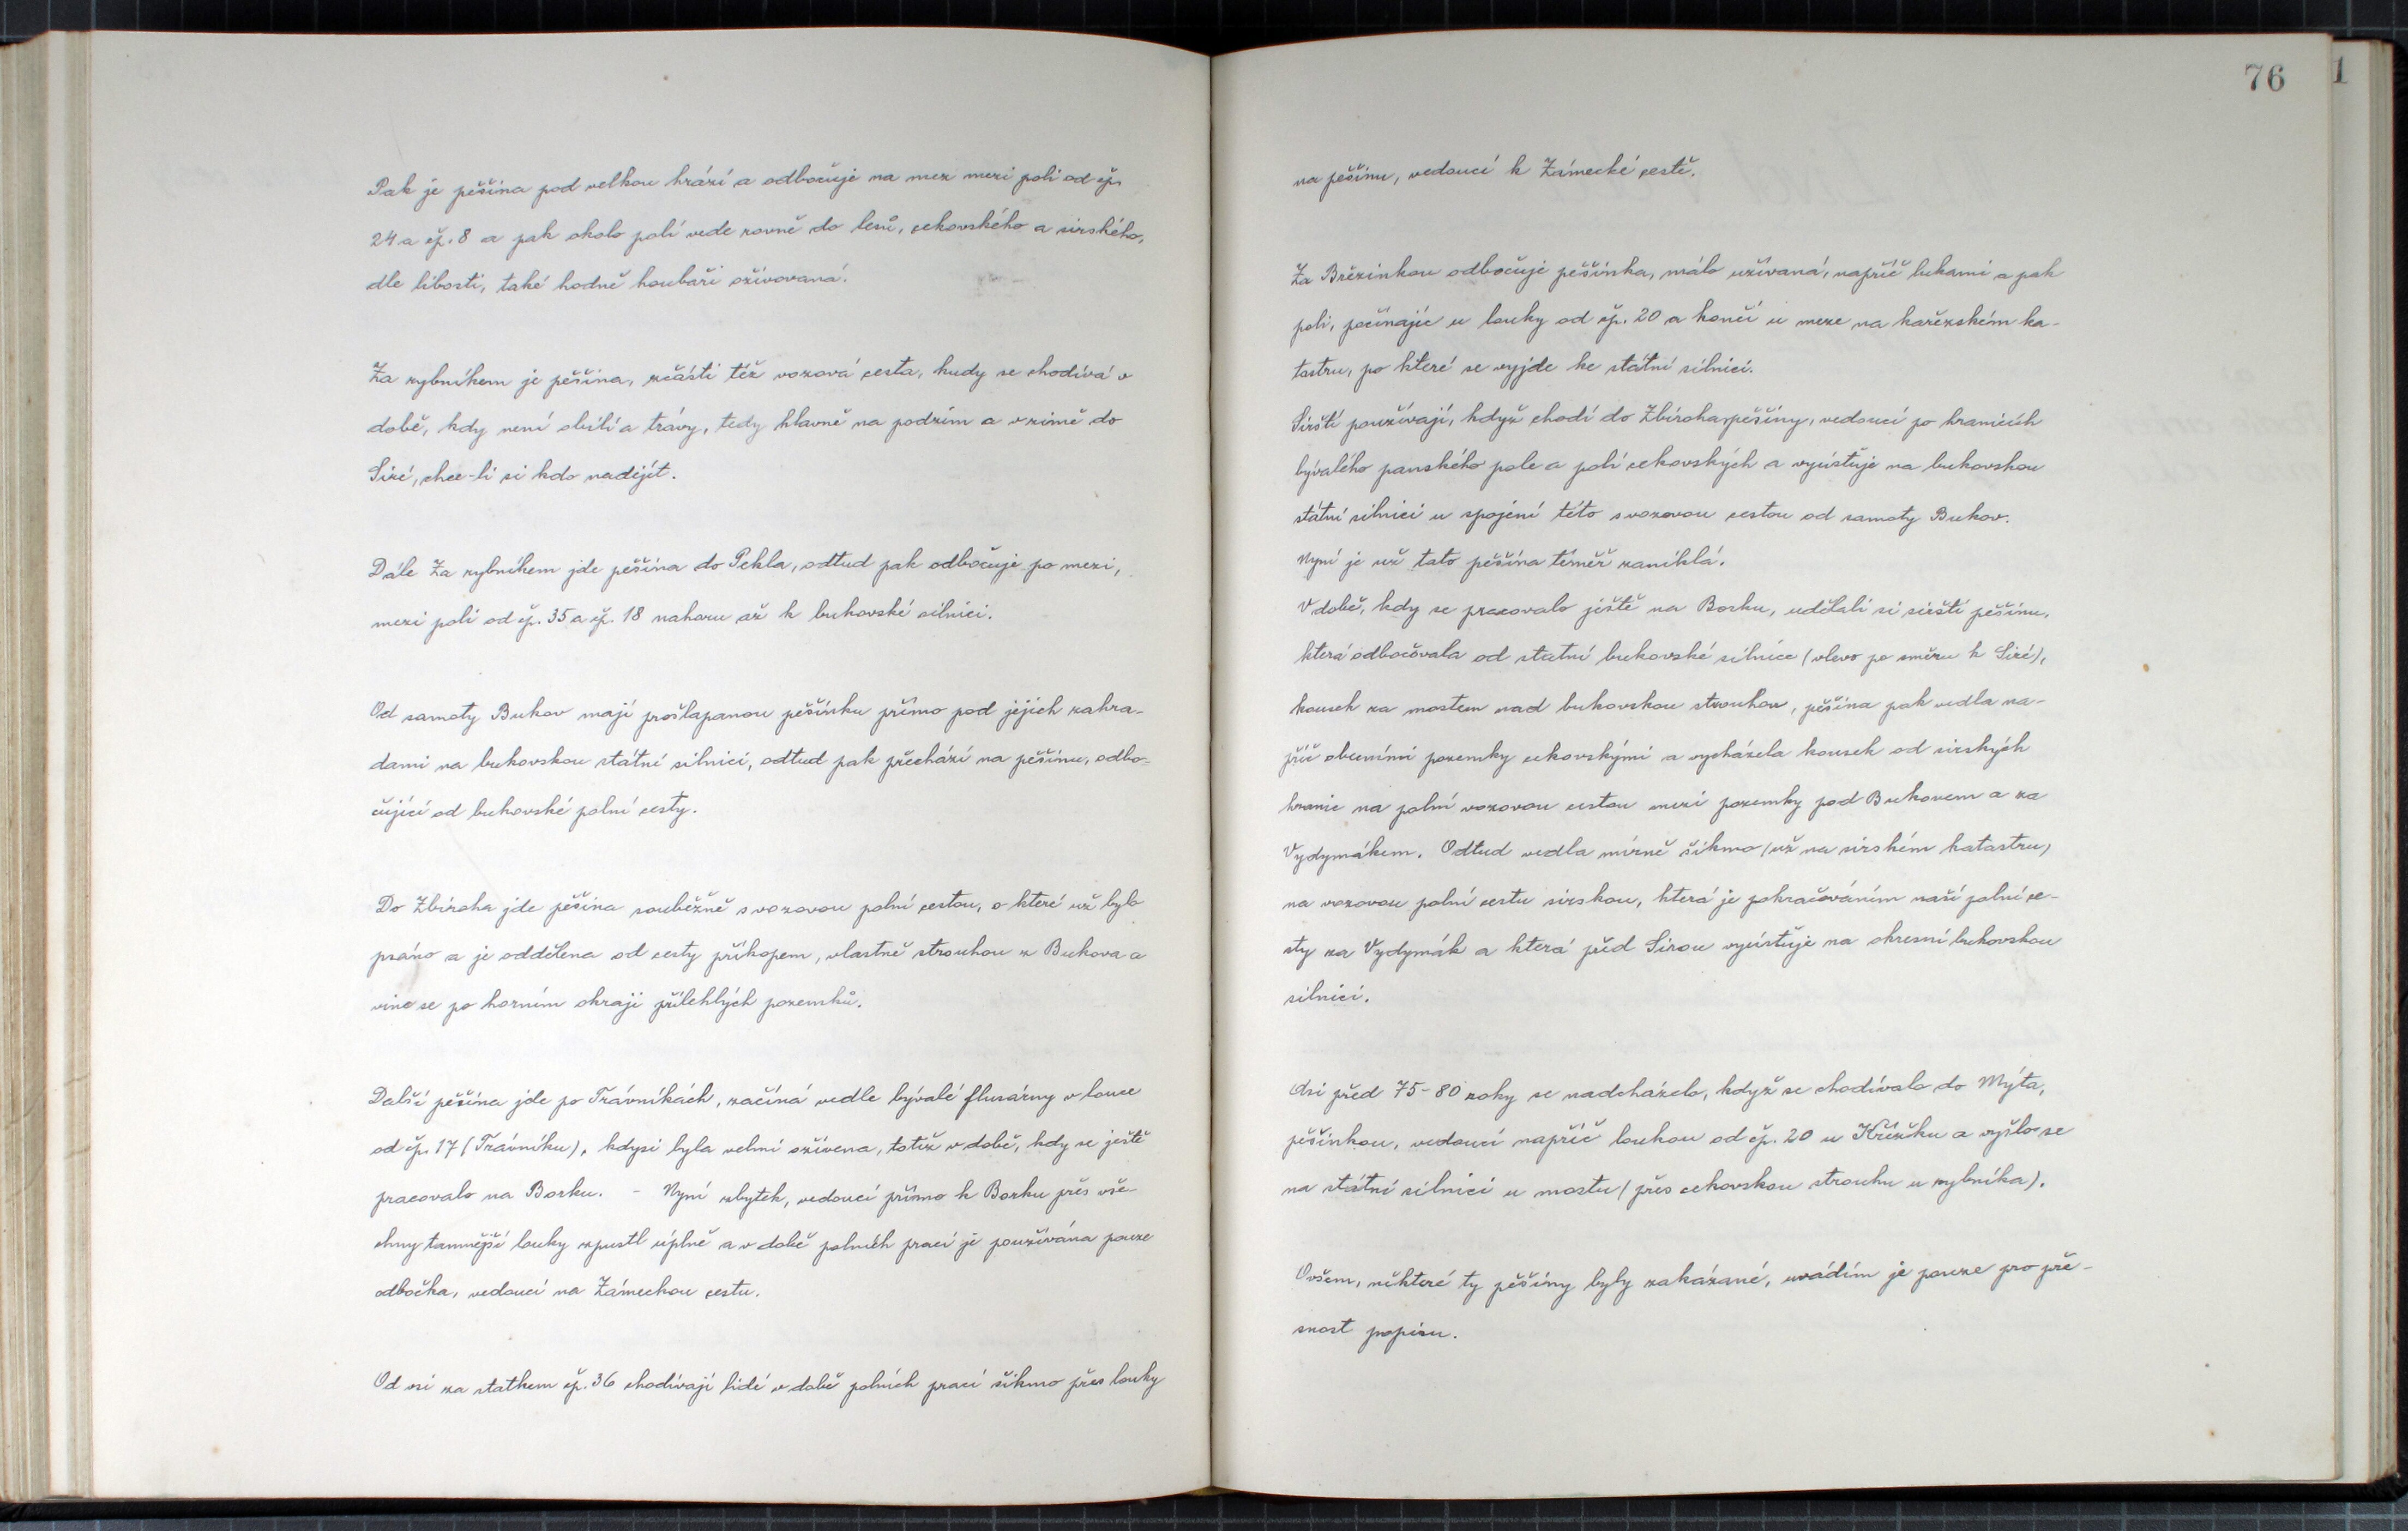 Pak je pěšina pod velkou hrází a odbočuje na mez mezi poli od čp.
24 a čp. 8 a pak okolo polí vede rovně do lesů, cekovského a sirského,
dle libosti, také hodně houbaři oživovaná.
Za rybníkem je pěšina, zčásti též vozová cesta, kudy se chodívá v
době, kdy není obilí a trávy, tedy hlavně na podzim a v zimě do
Siré, chce-li si kdo nadejít.
Dále Za rybníkem jde pěšina do Pekla, odtud pak odbočuje po mezi,
mezi poli od čp. 35 a čp. 18 nahoru až k bukovské silnici.
Od samoty Bukov mají prošlapanou pěšinku přímo pod jejich zahra-
dami na bukovskou státní silnici, odtud pak přechází na pěšinu, odbo-
čující od bukovské polní cesty.
Do Zbiroha jde pěšina souběžně s vozovou polní cestou, o které už bylo
psáno a je oddělena od cesty příkopem, vlastně strouhou z Bukova a
vine se po horním okraji přilehlých pozemků.
Další pěšina jde po Trávníkách, začíná vedle bývalé flusárny v louce
od čp. 17 (Trávníku), kdysi byla velmi oživena, totiž v době, kdy se ještě
pracovalo na Borku. - Nyní zbytek, vedoucí přímo k Borku přes vše-
chny tamnější louky zpustl úplně a v době polních prací je používána pouze
odbočka, vedoucí na Zámeckou cestu.
Od vsi za statkem čp. 36 chodívají lidé v době polních prací šikmo přes louky
76
1
na pěšinu, vedoucí k Zámecké cestě.
Za Březinkou odbočuje pěšinka, málo užívaná, napříč lukami a pak
poli, počínajíc u louky od čp. 20 a končí u meze na kařezském ka-
tastru, po které se vyjde ke státní silnici.
Sirští používají, když chodí do Zbiroha, pěšiny, vedoucí po hranicích
bývalého panského pole a polí cekovských a vyúsťuje na bukovskou
státní silnici u spojení této s vozovou cestou od samoty Bukov.
Nyní je už tato pěšina téměř zaniklá.
V době, kdy se pracovalo ještě na Borku, udělali si sirští pěšinu,
která odbočovala od statní bukovské silnice (vlevo po směru k Siré),
kousek za mostem nad bukovskou strouhou, pěšina pak vedla na-
příč obecními pozemky cekovskými a vycházela kousek od sirských
hranic na polní vozovou cestou mezi pozemky pod Bukovem a za
Vydymákem. Odtud vedla mírně šikmo (už na sirském katastru)
na vozovou polní cestu sirskou, která je pokračováním naší polní ce-
sty za Vydymák a která před Sirou vyúsťuje na okresní bukovskou
silnici.
Asi před 75-80 roky se nadcházelo, když se chodívalo do Mýta,
pěšinkou, vedoucí napříč loukou od čp. 20 u Křížku a vyšlo se
na státní silnici u mostu (přes cekovskou strouhu u rybníka).
Ovšem, některé ty pěšiny byly zakázané, uvádím je pouze pro pře-
snost popisu.